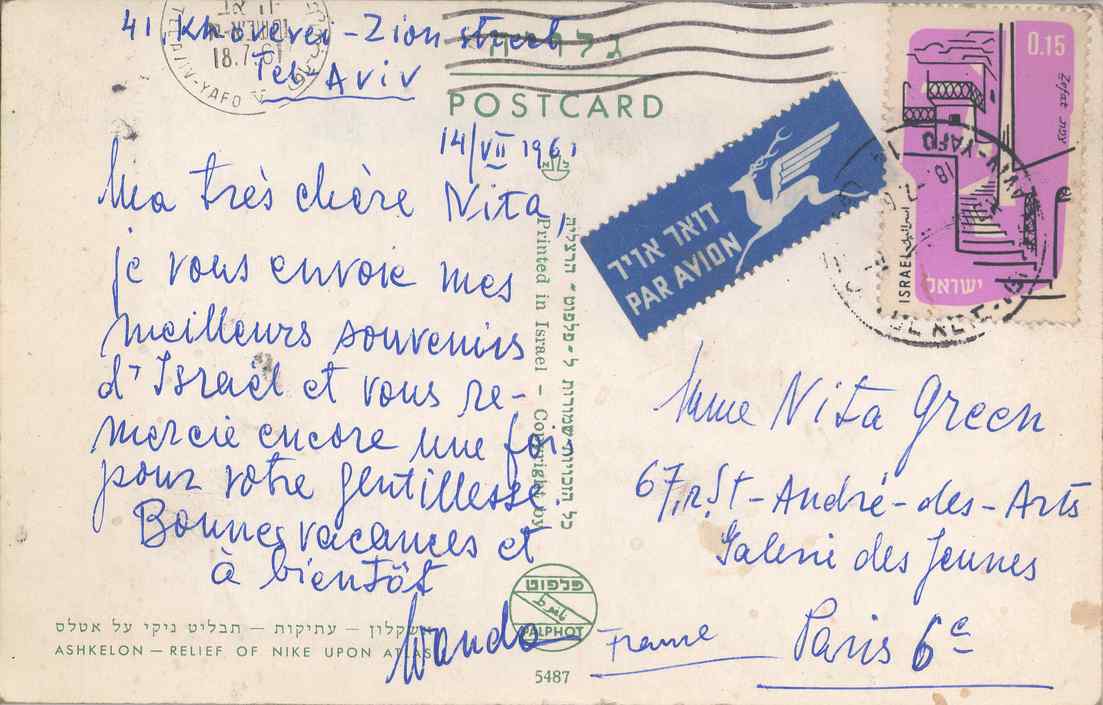 41, Khoverei-Zion street
Tel-Aviv
18.7.61
TEL AVIV-YAFO
גלויה
POSTCARD
14/VII 1961
Ma très chère Nita,
je vous envoie mes
meilleurs souvenirs
d'Israël et vous re-
mercie encore une foi
pour votre gentillesse.
Bonnes vacances et
à bientôt
Wanda
אשקלון – עתיקות – תבליט ניקי על אטלס
ASHKELON – RELIEF OF NIKE UPON ATLAS
כל הזכויות שמורות ל„פלפוט" הרצליה
Printed in Israel – Copyright by
פלפוט
PALPHOT
5487
דואר אויר
PAR AVION
0.15
Zefat צפת
ISRAEL اسرائيل
ישראל
Mme Nita Green
67, r. St-André-des-Arts
Galerie des Jeunes
Paris 6e
France